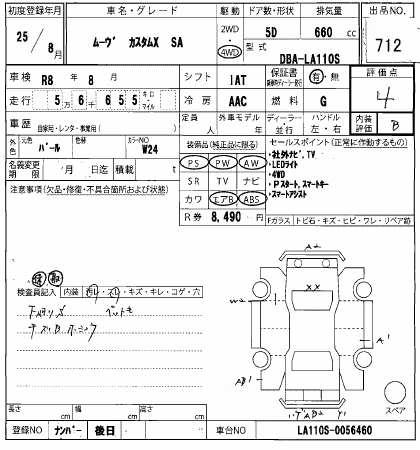 初度登録年月 車名・グレード 駆動 ドア数・形状 排気量 出品NO.
25/8月 ムーヴ カスタムX SA 2WD・4WD 5D 660cc 712
型式 DBA-LA110S
車検 R8年8月 シフト IAT 保証書 有・無 評価点 4
走行 5万6千655キロ・マイル 冷房 AAC 燃料 G
車歴 自家用・レンタ・事業用( ) 定員 人 外車モデル 年 ディーラー・並行 ハンドル 左・右 内装評価 B
外色 元色 パール 色替 カラーNO W24
装備品(純正品に限る)
PS PW AW
SR TV ナビ
カワ エアB ABS
R券 8,490円
セールスポイント(正常に作動するもの)
・社外ナビ、TV
・LEDライト
・4WD
・Pスタート、スマートキー
・スマートアシスト
名義変更期限 月 日迄 積載 t
注意事項(欠品・修復・不具合箇所および状態)
Fガラス トビ石・キズ・ヒビ・ワレ・リペア跡
検査員記入 内装 汚レ・スレ・キズ・キレ・コゲ・穴
A2
XX
W2
A1
AB1
スペア
長さ cm 幅 cm 高さ cm
登録NO ナンバー 後日 車台NO LA110S-0056460